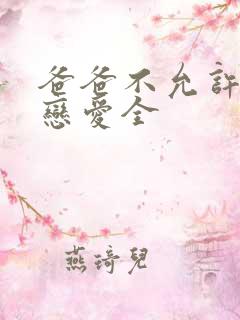 爸爸不允許
戀愛全
燕琦兒